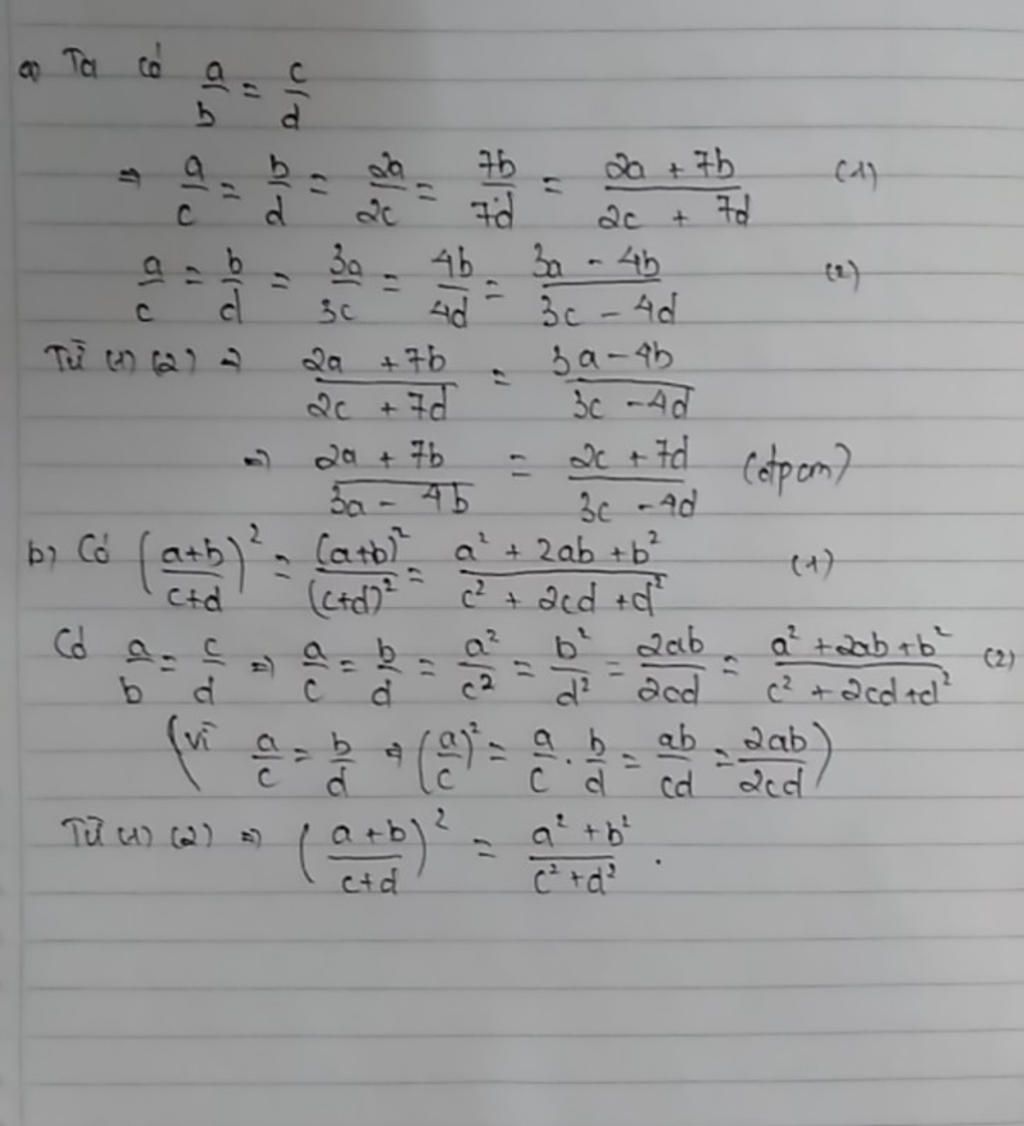 a) Ta có a/b = c/d
⇒ a/c = b/d = 2a/2c = 7b/7d = (2a + 7b)/(2c + 7d) (1)
a/c = b/d = 3a/3c = 4b/4d = (3a - 4b)/(3c - 4d) (2)
Từ (1) (2) ⇒ (2a + 7b)/(2c + 7d) = (3a - 4b)/(3c - 4d)
⇒ (2a + 7b)/(3a - 4b) = (2c + 7d)/(3c - 4d) (đpcm)
b) Có ((a+b)/(c+d))² = (a+b)²/(c+d)² = (a² + 2ab + b²)/(c² + 2cd + d²) (1)
Có a/b = c/d ⇒ a/c = b/d = a²/c² = b²/d² = 2ab/2cd = (a² + 2ab + b²)/(c² + 2cd + d²) (2)
(vì a/c = b/d ⇒ (a/c)² = a/c . b/d = ab/cd = 2ab/2cd)
Từ (1) (2) ⇒ ((a+b)/(c+d))² = (a² + b²)/(c² + d²) .